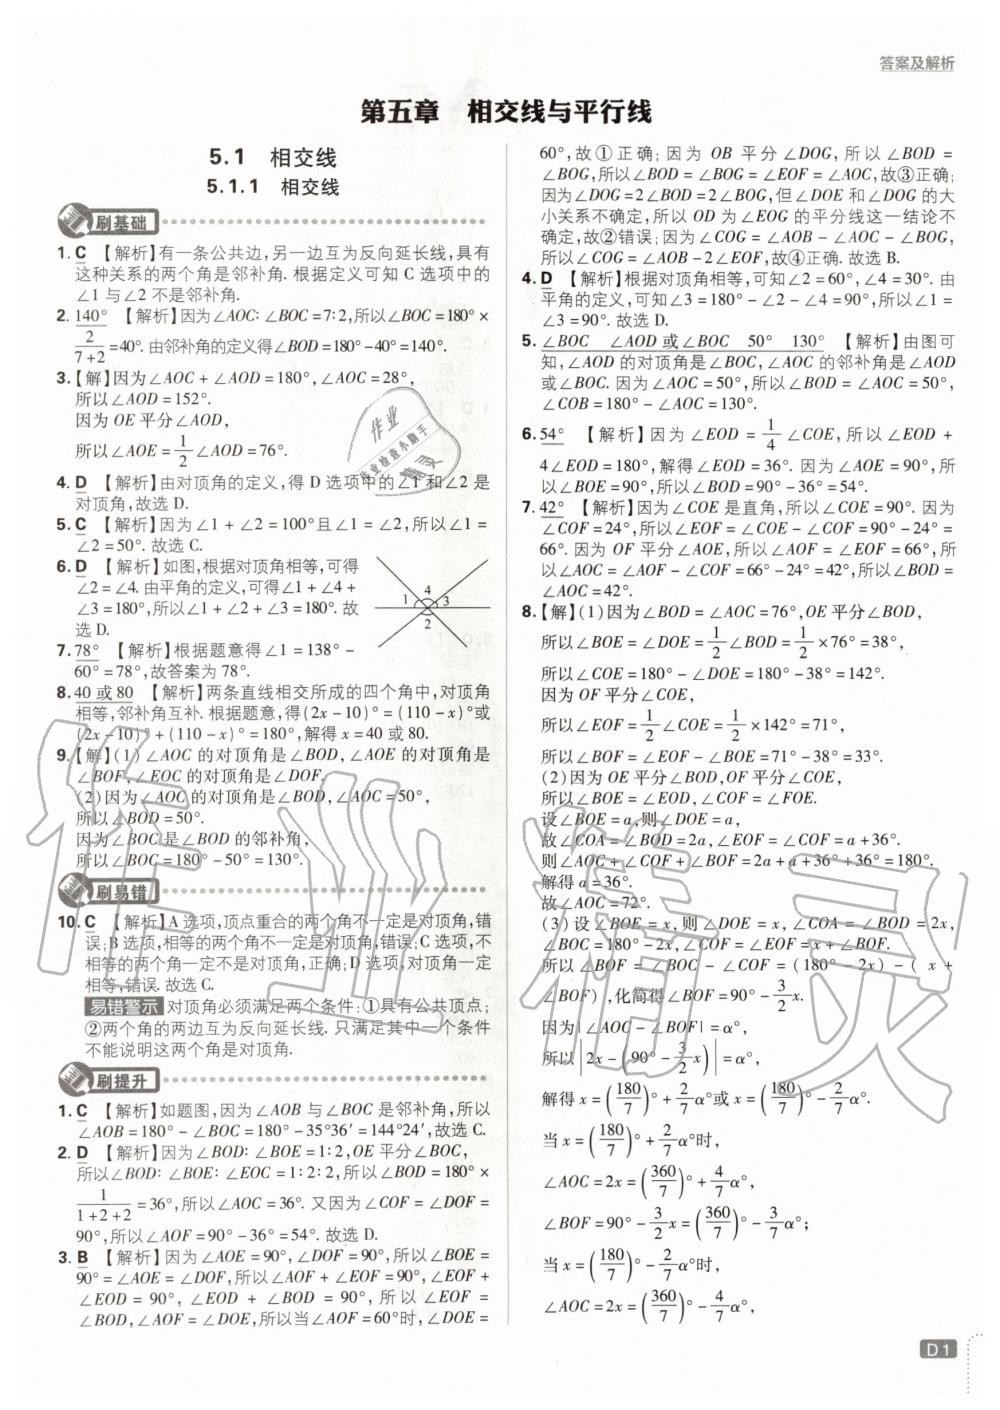 答案及解析
第五章 相交线与平行线
5.1 相交线
5.1.1 相交线
刷基础
1. C 【解析】有一条公共边,另一边互为反向延长线,具有
这种关系的两个角是邻补角. 根据定义可知 C 选项中的
∠1 与∠2 不是邻补角.
2. 140° 【解析】因为∠AOC∶∠BOC=7∶2,所以∠BOC=180°×
2/(7+2)=40°. 由邻补角的定义得∠BOD=180°-40°=140°.
3. 【解】因为∠AOC+∠AOD=180°,∠AOC=28°,
所以∠AOD=152°.
因为 OE 平分∠AOD,
所以∠AOE=1/2∠AOD=76°.
4. D 【解析】由对顶角的定义,得 D 选项中的∠1 和∠2 是
对顶角,故选 D.
5. C 【解析】因为∠1+∠2=100°且∠1=∠2,所以∠1=
∠2=50°. 故选 C.
6. D 【解析】如图,根据对顶角相等,可得
∠2=∠4. 由平角的定义,可得∠1+∠4+
∠3=180°,所以∠1+∠2+∠3=180°. 故
选 D.
1 4 3 2
7. 78° 【解析】根据题意得∠1=138°-
60°=78°,故答案为 78°.
8. 40 或 80 【解析】两条直线相交所成的四个角中,对顶角
相等,邻补角互补. 根据题意,得(2x-10)°=(110-x)°或
(2x-10)°+(110-x)°=180°,解得 x=40 或 80.
9. 【解】(1)∠AOC 的对顶角是∠BOD,∠AOE 的对顶角是
∠BOF,∠EOC 的对顶角是∠DOF.
(2)因为∠AOC 的对顶角是∠BOD,∠AOC=50°,
所以∠BOD=50°.
因为∠BOC 是∠BOD 的邻补角,
所以∠BOC=180°-50°=130°.
刷易错
10. C 【解析】A 选项,顶点重合的两个角不一定是对顶角,错
误;B 选项,相等的两个角不一定是对顶角,错误;C 选项,不
相等的两个角一定不是对顶角,正确;D 选项,对顶角一定
相等,错误. 故选 C.
易错警示 对顶角必须满足两个条件:①具有公共顶点;
②两个角的两边互为反向延长线. 只满足其中一个条件
不能说明这两个角是对顶角.
刷提升
1. C 【解析】如题图,因为∠AOB 与∠BOC 是邻补角,所以
∠AOB=180°-∠BOC=180°-35°36′=144°24′,故选 C.
2. D 【解析】因为∠BOD∶∠BOE=1∶2,OE 平分∠BOC,
所以∠BOD∶∠BOE∶∠EOC=1∶2∶2,所以∠BOD=180°×
1/(1+2+2)=36°,所以∠AOC=36°. 又因为∠COF=∠DOF=
90°,所以∠AOF=90°-36°=54°. 故选 D.
3. B 【解析】因为∠AOE=90°,∠DOF=90°,所以∠BOE=
90°=∠AOE=∠DOF,所以∠AOF+∠EOF=90°,∠EOF+
∠EOD=90°,∠EOD+∠BOD=90°,所以∠EOF=
∠BOD,∠AOF=∠DOE,所以当∠AOF=60°时,∠DOE=
60°,故①正确;因为 OB 平分∠DOG,所以∠BOD=
∠BOG,所以∠BOD=∠BOG=∠EOF=∠AOC,故③正确;
因为∠DOG=2∠BOD=2∠BOG,但∠DOE 和∠DOG 的大
小关系不确定,所以 OD 为∠EOG 的平分线这一结论不
确定,故②错误;因为∠COG=∠AOB-∠AOC-∠BOG,
所以∠COG=∠AOB-2∠EOF,故④正确. 故选 B.
4. D 【解析】根据对顶角相等,可知∠2=60°,∠4=30°. 由
平角的定义,可知∠3=180°-∠2-∠4=90°,所以∠1=
∠3=90°. 故选 D.
5. ∠BOC ∠AOD 或∠BOC 50° 130° 【解析】由图可
知,∠AOD 的对顶角是∠BOC,∠AOC 的邻补角是∠AOD
或∠BOC. 因为∠AOC=50°,所以∠BOD=∠AOC=50°,
∠COB=180°-∠AOC=130°.
6. 54° 【解析】因为∠EOD=1/4∠COE,所以∠EOD+
4∠EOD=180°,解得∠EOD=36°. 因为∠AOE=90°,所
以∠BOE=90°,所以∠BOD=90°-36°=54°.
7. 42° 【解析】因为∠COE 是直角,所以∠COE=90°. 因为
∠COF=24°,所以∠EOF=∠COE-∠COF=90°-24°=
66°. 因为 OF 平分∠AOE,所以∠AOF=∠EOF=66°,所
以∠AOC=∠AOF-∠COF=66°-24°=42°,所以∠BOD=
∠AOC=42°.
8. 【解】(1)因为∠BOD=∠AOC=76°,OE 平分∠BOD,
所以∠BOE=∠DOE=1/2∠BOD=1/2×76°=38°,
所以∠COE=180°-∠DOE=180°-38°=142°.
因为 OF 平分∠COE,
所以∠EOF=1/2∠COE=1/2×142°=71°,
所以∠BOF=∠EOF-∠BOE=71°-38°=33°.
(2)因为 OE 平分∠BOD,OF 平分∠COE,
所以∠BOE=∠EOD,∠COF=∠FOE.
设∠BOE=a,则∠DOE=a,
故∠COA=∠BOD=2a,∠EOF=∠COF=a+36°.
则∠AOC+∠COF+∠BOF=2a+a+36°+36°=180°.
解得 a=36°.
故∠AOC=72°.
(3)设∠BOE=x,则∠DOE=x,∠COA=∠BOD=2x,
∠BOC=180°-2x,∠COF=∠EOF=x+∠BOF.
所以∠BOF=∠BOC-∠COF=(180°-2x)-(x+
∠BOF),化简得∠BOF=90°-3/2x.
因为|∠AOC-∠BOF|=α°,
所以|2x-(90°-3/2x)|=α°,
解得 x=(180/7)°+2/7α°或 x=(180/7)°-2/7α°.
当 x=(180/7)°+2/7α°时,
∠AOC=2x=(360/7)°+4/7α°,
∠BOF=90°-3/2x=(360/7)°-3/7α°;
当 x=(180/7)°-2/7α°时,
∠AOC=2x=(360/7)°-4/7α°,
D1
作业
作业检查小助手
精灵
作业精灵